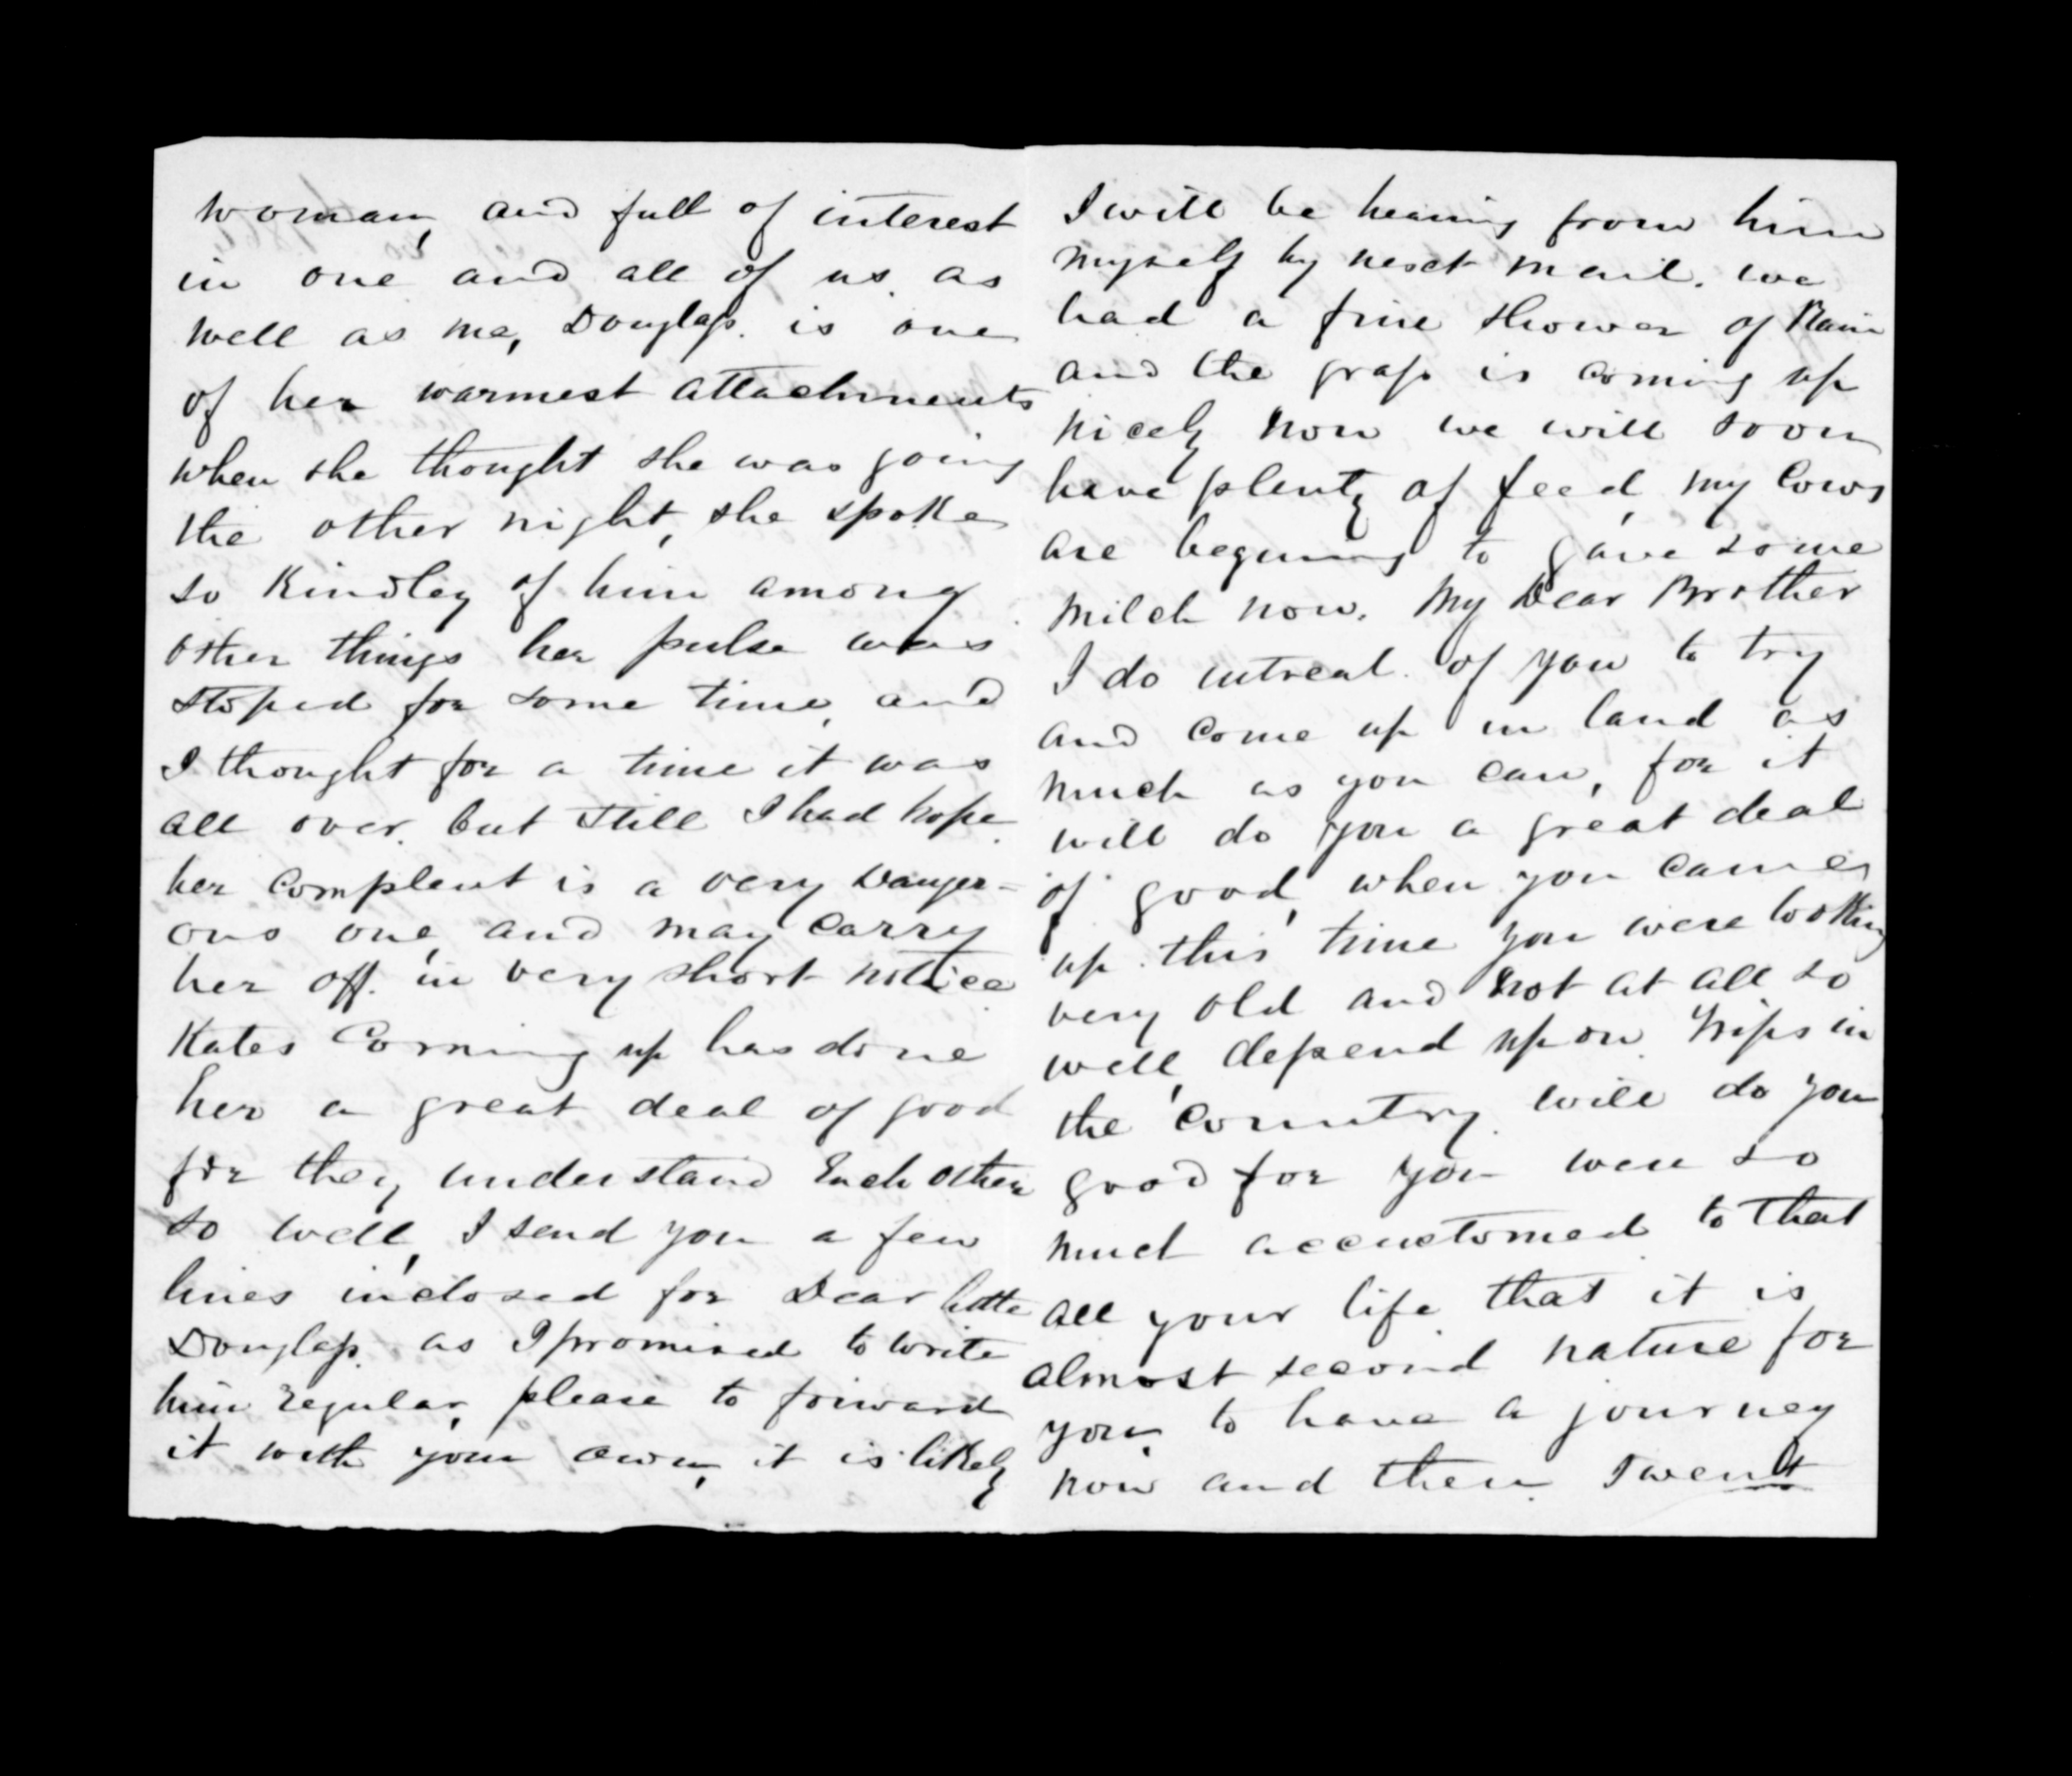 woman, and full of interest
in one and all of us. as
well as me, Douglass. is one
of her warmest attachments
when she thought she was going
the other night, she spoke
so kindley of him among
other things her pulse was
stoped for some time, and
I thought for a time it was
all over. but still I had hope.
her complent is a very Danger-
ous one, and may carry
her off. in very short notice
Kates Corning up has done
her a great deal of good
for they understand Each other
so well, I send you a few
lines inclosed for Dear little
Douglass. as I promised to write
him regular, please to forward
it with your own, it is likely
I will be hearing from him
myself by next mail. we
had a fine shower of Rain
and the grass is coming up
nicely now we will soon
have plenty of feed, my Cows
are beguning to gave some
milck now. My Dear Brother
I do intreat. of you to try
and come up in land as
much as you can, for it
will do you a great deal
of good, when you came
up this time you were looking
very old and not at all so
well, depend upon. trips in
the Country. will do you
good for you were so
much accustomed to that
all your life that it is
almost second nature for
you, to have a journey
now and then. I went